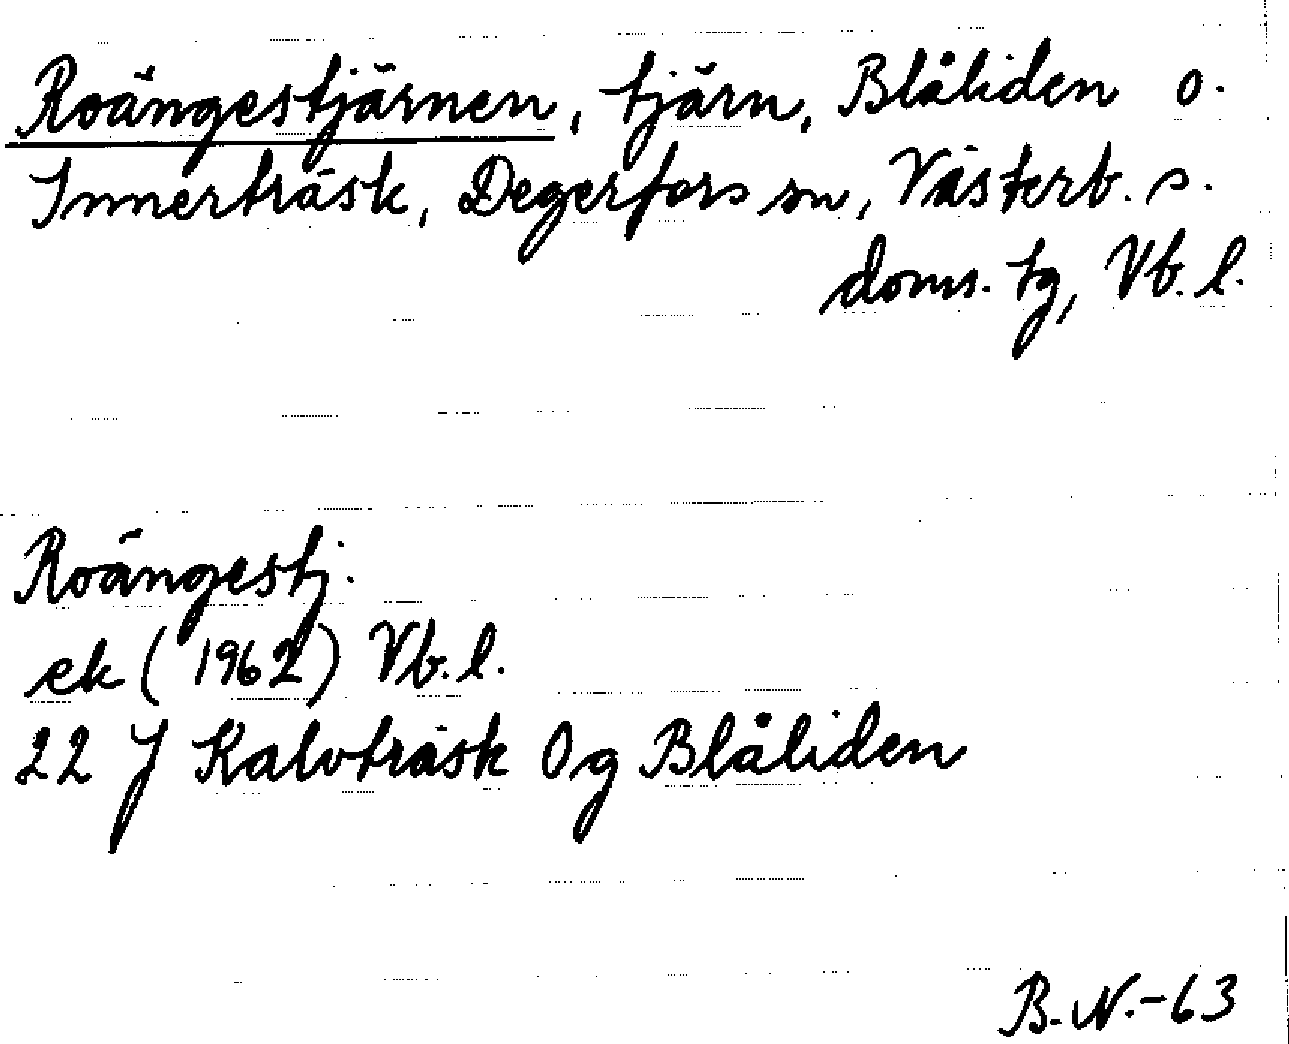 Roängestjärnen, tjärn, Blåliden o.
Innerträsk, Degerfors sn, Västerb. s.
doms. tg, Vb. l.
Roängestj.
ek (1962) Vb. l.
22 J Kalvträsk Og Blåliden
B. N. -63